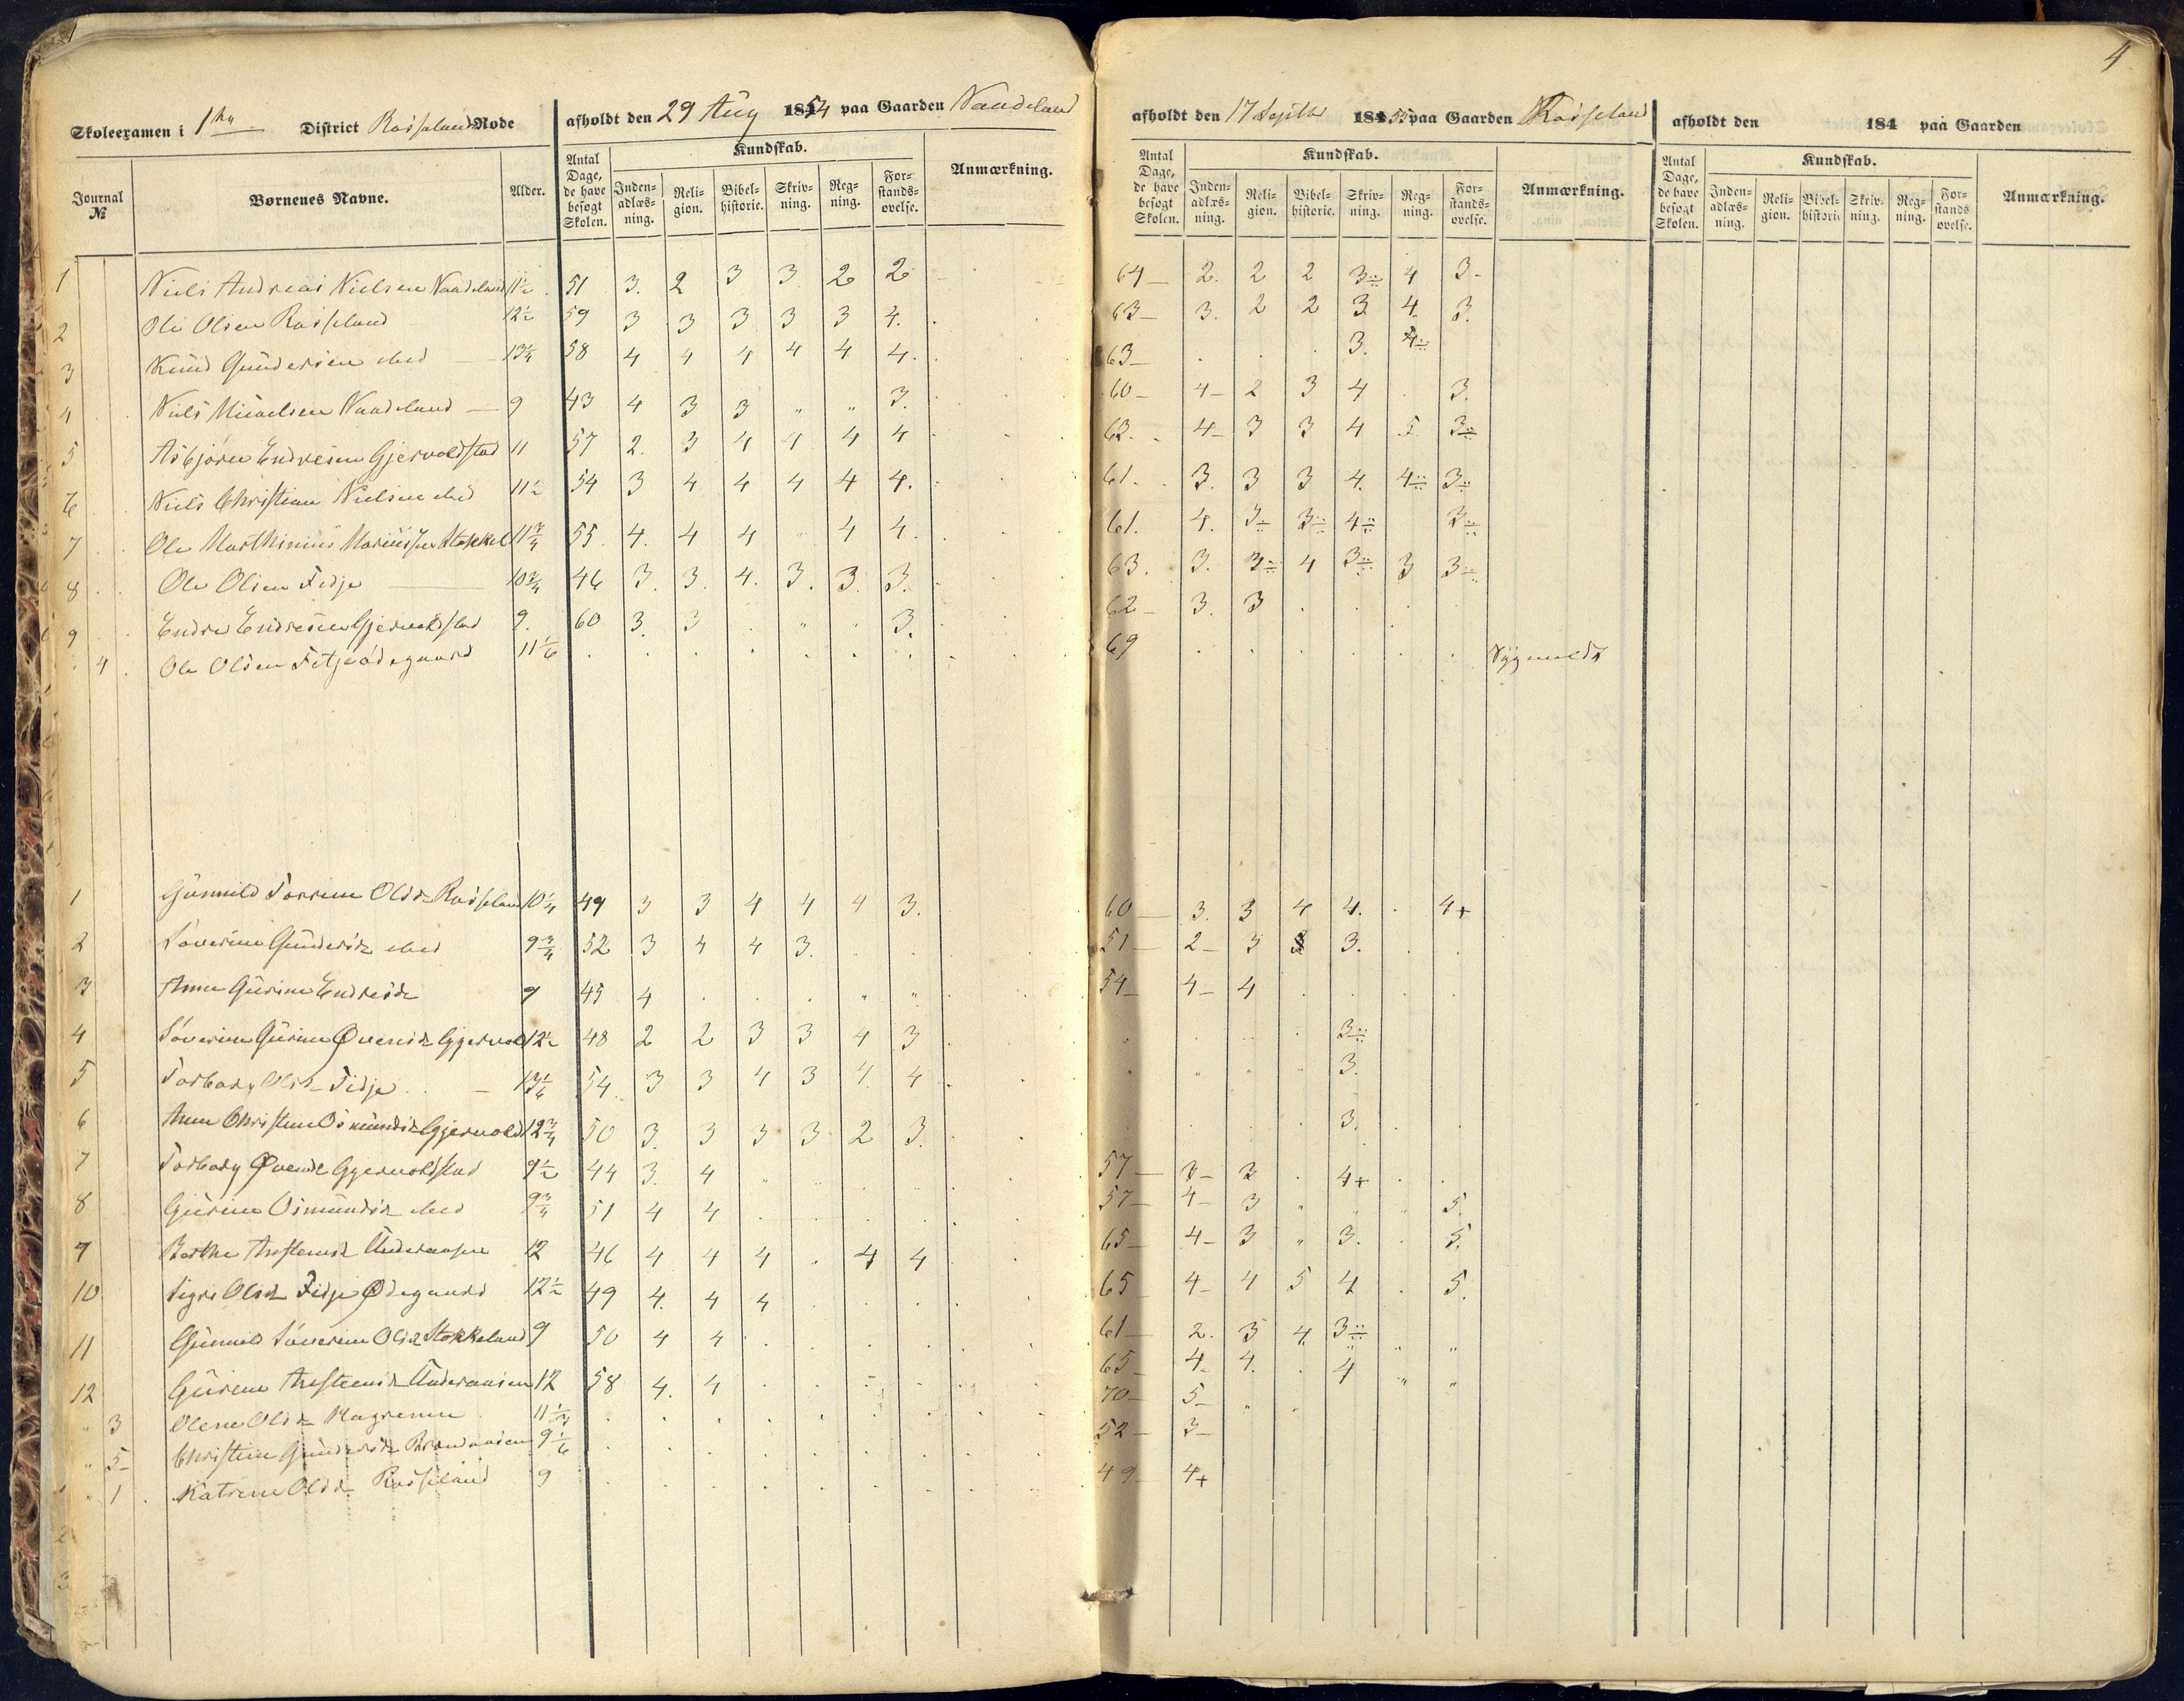 4
Skoleexamen i 1ste District Rosseland Rode
afholdt den 29 Aug 1854 paa Gaarden Naudeland
afholdt den 17 Septbr 1855 paa Gaarden Rosseland
afholdt den 184 paa Gaarden
Journal № Børnenes Navne. Alder. Antal Dage, de have besøgt Skolen. Kundskab. Indenadlæsning. Religion. Bibelhistorie. Skrivning. Regning. Forstandsøvelse. Anmærkning.
Antal Dage, de have besøgt Skolen. Kundskab. Indenadlæsning. Religion. Bibelhistorie. Skrivning. Regning. Forstandsøvelse. Anmærkning.
Antal Dage, de have besøgt Skolen. Kundskab. Indenadlæsning. Religion. Bibelhistorie. Skrivning. Regning. Forstandsøvelse. Anmærkning.
1 Niels Andreas Nielsen Naudeland 11½ 51 3. 2 3 3 2 2 64 2. 2 2 3÷ 4 3-
2 Ole Olsen Rosseland 12½ 59 3 3 3 3 3 4. 63 3. 2 2 3. 4. 3.
3 Knud Gundersen ibid 13¼ 58 4 4 4 4 4 4. 63 . . . 3. 4÷
4 Niels Michelsen Naudeland 9 43 4 3 3 " " 3. 60 4- 2 3 4 . 3.
5 Asbjørn Endresen Gjervoldstad 11 57 2. 3 4 4 4 4 62. 4- 3 3 4 5. 3÷
6 Niels Christian Nielsen ibid 11½ 54 3 4 4 4 4 4. 61. 3. 3 3 4. 4÷ 3÷
7 Ole Marthinius Stokkel 11¾ 55 4. 4 4 " 4 4. 61. 4. 3÷ 3÷ 4÷ 3÷
8 Ole Olsen Fidje 10¾ 46 3. 3. 4. 3. 3. 3. 63. 3. 3÷ 4 3÷ 3 3÷
9 Endre Endresen Gjervoldstad 9. 60 3. 3 . " " 3. 62 3. 3 . . .
4 Ole Olsen Fitjeødegaard 11 1/6 . . . . . . . 69 . . . . . . Sygmeldt
1 Gunnild Torrine Olsd Rosseland 10¼ 49 3 3 4 4 4 3. 60 3. 3 4 4. . 4+
2 Severine Gundersd ibid 9¾ 52 3 4 4 3. . . 51 2- 3 3 3. .
3 Anne Gurine Endresd 9 45 4 . . . " " 54 4- 4 . . . .
4 Severine Gurine Øvensd Gjervol 12½ 48 2 2 3 3 4 3 3÷
5 Torborg Olsd Fidje 13 1/6 54 3 3 4 3 4. 4 " " " " 3.
6 Anne Christine Osmundsd Gjervold 12¾ 50 3. 3 3 3 2 3. 3.
7 Torborg Øvensd Gjervoldstad 9½ 44 3. 4 57 3- 3 . 4+ . .
8 Gurine Osmundsd ibid 9¾ 51 4 4 . . . . 57 4- 3 " " " 5.
9 Berthe Anstensd Underaasen 12 46 4 4 4 . 4 4 65 4- 3 " 3. . 5.
10 Sigri Olsd Fidje Ødegaard 12½ 49 4. 4 4 . . . 65 4- 4 5 4 . 5.
11 Gunnild Severine Olsd Stokkeland 9 50 4 4 . . . . 61 2. 3 4. 3÷ " "
12 Gurine Anstensd Underaasen 12 58 4. 4 . . . . 65 4- 4. . 4 " "
" 3 Olene Olsd 11 1/3 . . . . . . . 70 5- " "
" 5 Christine Gundersd 9 1/6 . . . . . . . 52 3-
" 1 Katrine Olsd Rosseland 9 . . . . . . . 49 4+